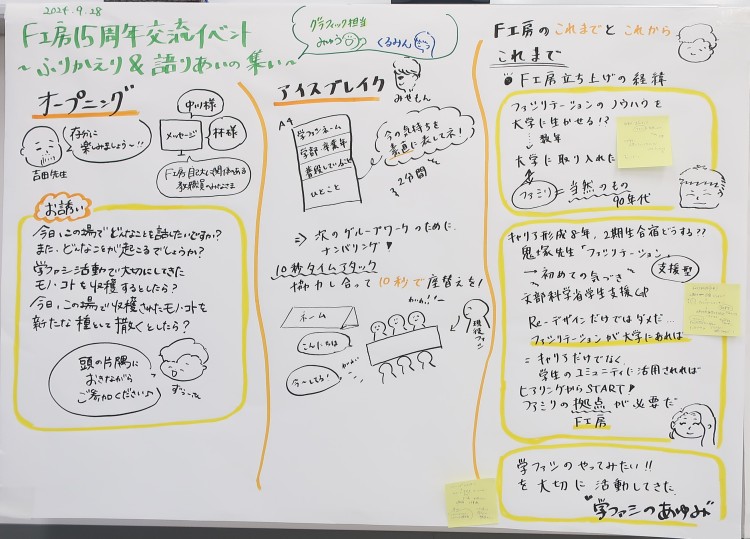 2024.9.28
F工房15周年交流イベント
～ふりかえり&語りあいの集い～
グラフィック担当
みゅう
くるみん
オープニング
吉田先生
存分に
楽しみましょう～!!
中川様
メッセージ
林様
お誘い
今日、この場でどんなことを話したいですか?
また、どんなことが起こるでしょうか?
学ファシ活動で大切にしてきた
モノ・コトを収穫するとしたら?
今日、この場で収穫されたモノ・コトを
新たな種として撒くとしたら?
頭の片隅に
おきながら
ご参加ください♪
アイスブレイク
みぜもん
A4
学ファシネーム
学部・卒業年
普段していること
ひとこと
今の気持ちを
素直に表してネ!
2分間
⇒ 次のグループワークのために
ナンバリング!
10秒タイムアタック
協力し合って10秒で席替えを!
ネーム
こんにちは
現役ファシ
F工房のこれまでとこれから
これまで
●F工房立ち上げの経緯
ファシリテーションのノウハウを
大学に生かせる!?
数年
→大学に取り入れた
ファシリ=当然のもの
90年代
キャリア形成8年、2期生合宿どうする??
鬼塚先生「ファシリテーション」
→初めての気づき
支援型
文部科学省学生支援GP
Re-デザインだけではダメだ…
ファシリテーションが大学にあれば
=キャリアだけでなく、
学生のコミュニティに活用されれば
ヒアリングからSTART!
ファシリの拠点が必要だ
F工房
学ファシのやってみたい!!
を大切に活動してきた
"学ファシのあゆみ"